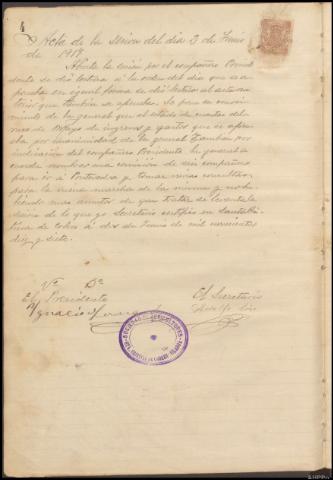 4
Acta de la sesion del dia 2 de Junio
de 1917
Abierta la sesión por el compañero Presi
dente se dio lectura a la orden del dia que es a
probada en igual forma se dio lectura al acta an
terior que tambien es aprobada. Se puso en conoci
miento de la general que el estado de cuentas del
mes de Mayo de ingresos y gastos que es apro
bada por unanimidad de la general tambien por
indicacion del compañero Presidente la general a
cuerda nombrar una comisión de seis compañeros
para ir a Pontevedra y tomar varias consultas
para la buena marcha de las mismas y no ha
biendo mas asuntos de que tratar se levanta la
sesión de lo que yo Secretario certifico en
de a dos de Junio de mil novecientos
diez y siete.
Vº Bº
El Presidente
El Secretario
Ignacio
Adolfo
SOCIEDAD DE AGRICULTORES